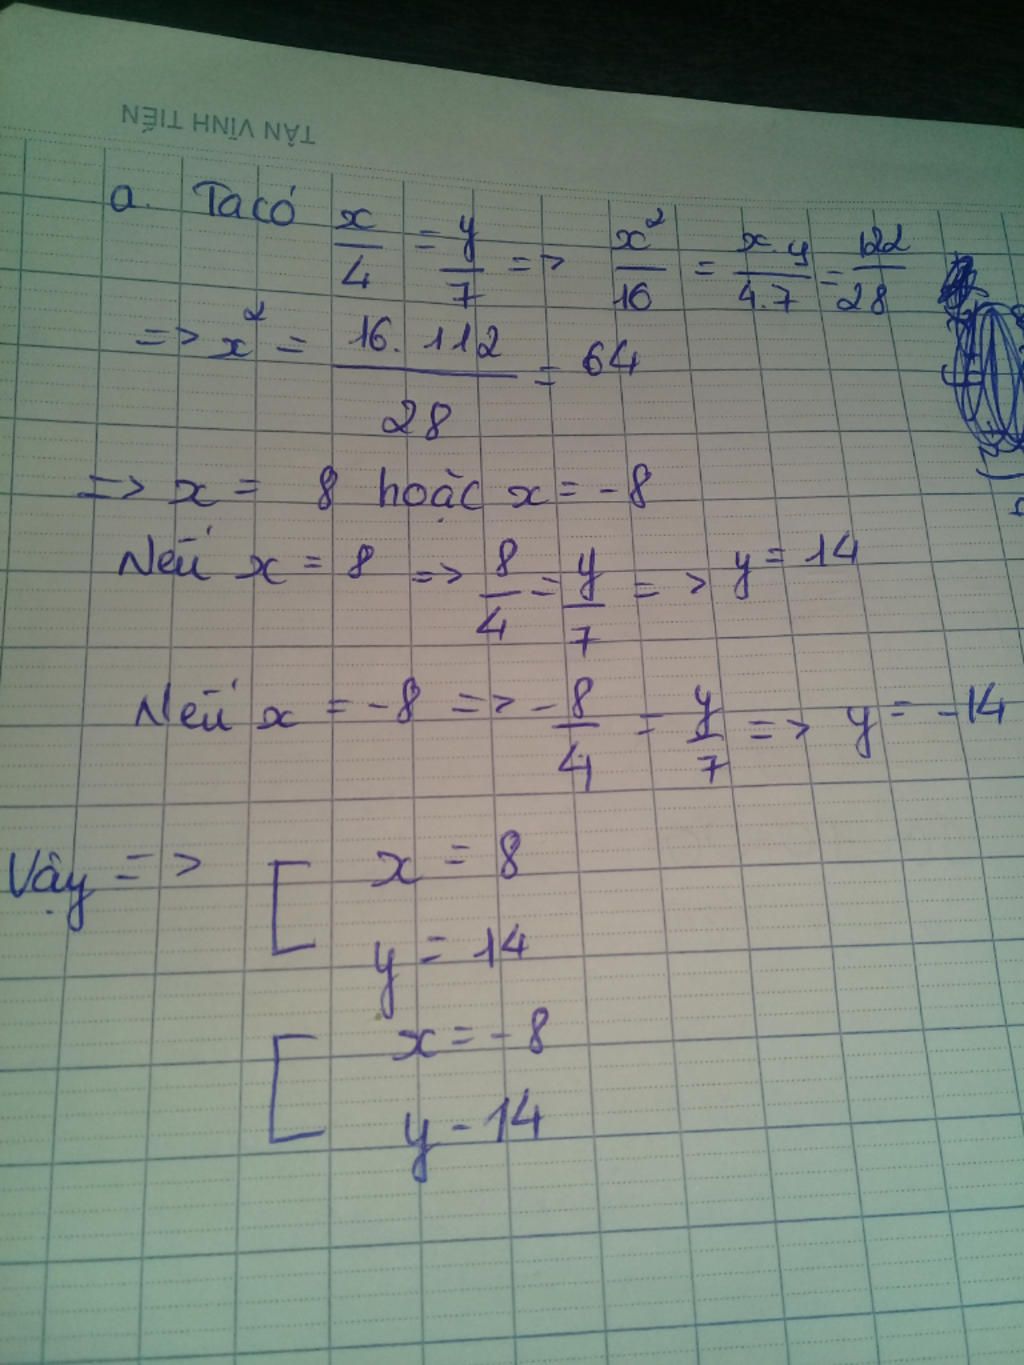 TÂN VĨNH TIẾN
a. Ta có x/4 = y/7 => x²/16 = x.y/4.7 = 122/28
=> x² = 16.112/28 = 64
=> x = 8 hoặc x = -8
Nếu x = 8 => 8/4 = y/7 => y = 14
Nếu x = -8 => -8/4 = y/7 => y = -14
Vậy => [ x = 8
y = 14
[ x = -8
y - 14